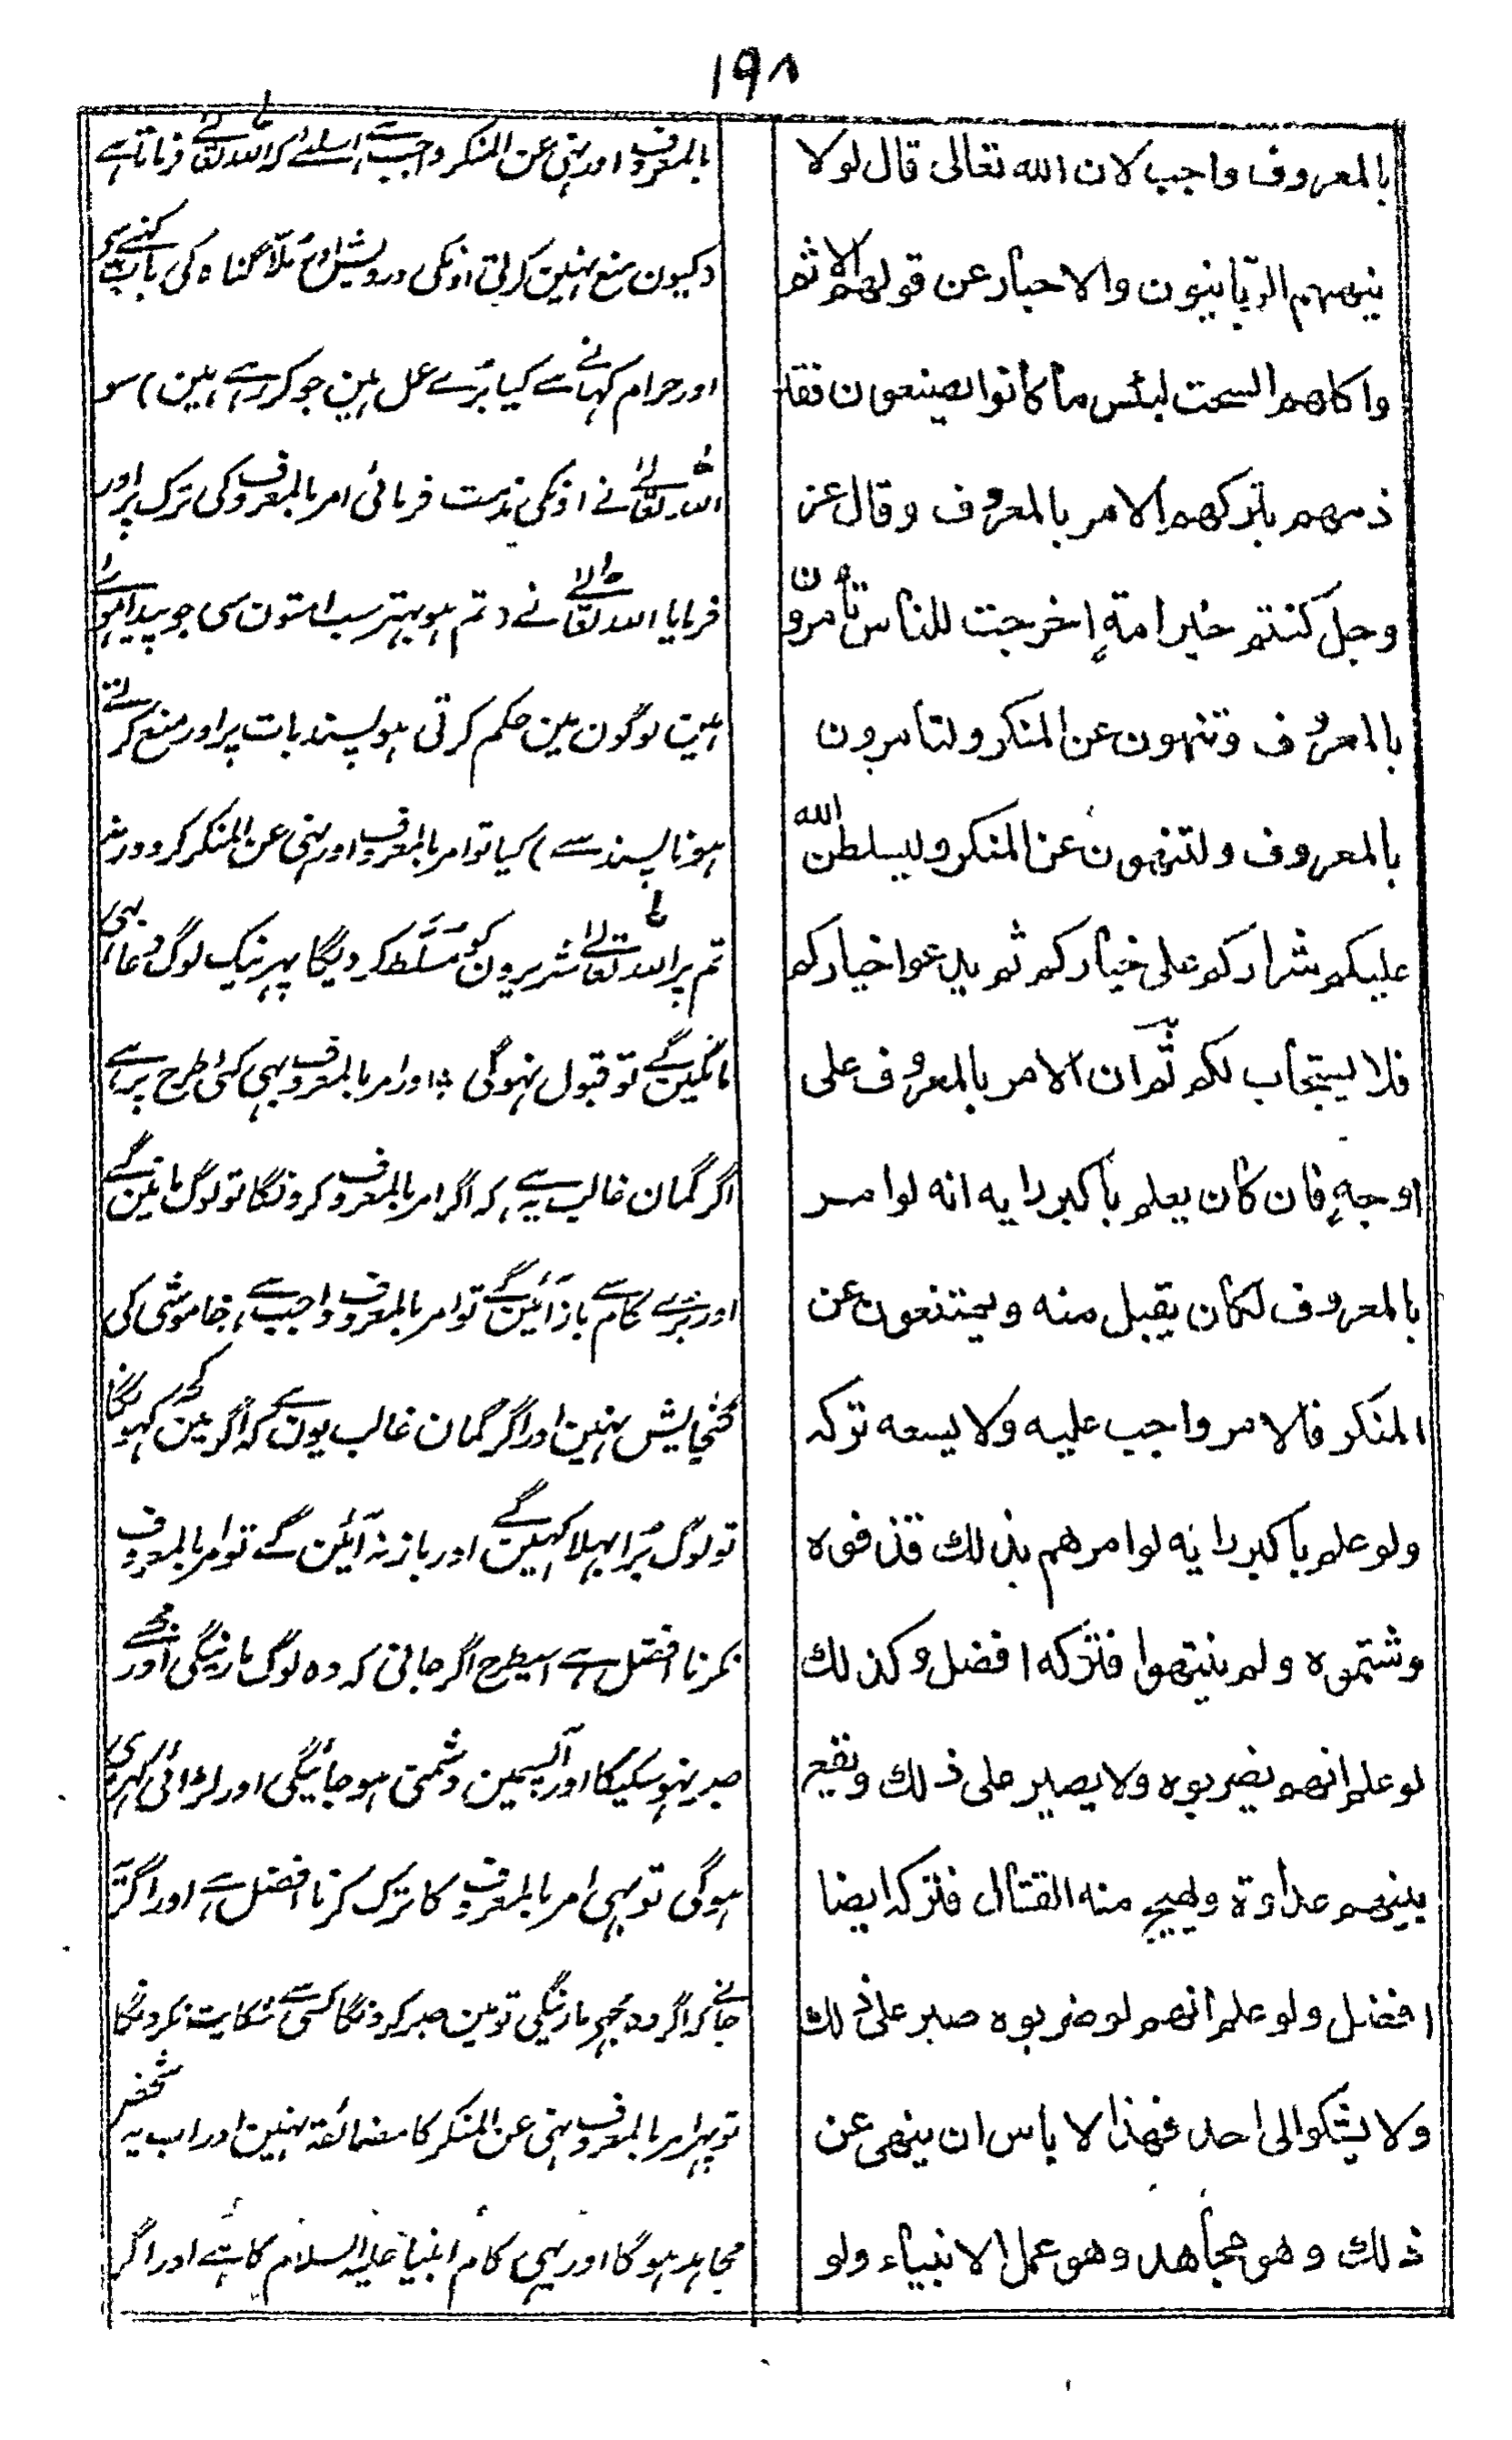 ۱۹۸
بالمعروف واجب لان الله تعالى قال لولا
ينههم الربانيون والاحبار عن قولهم الاثم
واكلهم السحت لبئس ما كانوا يصنعون فقد
ذمهم بتركهم الامر بالمعروف وقال عز
وجل كنتم خير امة اخرجت للناس تأمرون
بالمعروف وتنهون عن المنكر ولتأمرون
بالمعروف ولتنهون عن المنكر وليسلطن الله
عليكم شراركم على خياركم ثم يدعوا خياركم
فلا يستجاب لكم ثم ان الامر بالمعروف على
اوجه فان كان يعلم باكبر رايه انه لو امر
بالمعروف لكان يقبل منه ويمتنعون عن
المنكر فالامر واجب عليه ولا يسعه تركه
ولو علم باكبر رايه لو امرهم بذلك قذفوه
وشتموه ولم ينتهوا فتركه افضل وكذلك
لو علم انهم يضربوه ولا يصبر على ذلك ويقع
بينهم عداوة ويهيج منه القتال فتركه ايضا
افضل ولو علم انهم لو ضربوه صبر على ذلك
ولا يشكوا الى احد فهذا لا باس ان ينهى عن
ذلك وهو مجاهد وهو عمل الانبياء ولو
بالمعروف اور نہی عن المنکر واجب ہے اسلئے کہ اللہ تعالے فرماتا ہے
(کیون منع نہین کرتی اونکی درویش اور ملا گناہ کی بات کہنے سے
اور حرام کہانے سے کیا برے عمل ہین جو کر رہے ہین) سو
اللہ تعالے نے اونکی مذمت فرمائی امر بالمعروف کی ترک پر اور
فرمایا اللہ تعالے نے (تم ہو بہتر سب امتون سی جو پیدا ہوئے
ہین لوگون مین حکم کرتی ہو پسند بات پر اور منع کرتے
ہو ناپسند سے) کیا تو امر بالمعروف اور نہی عن المنکر کرو ورنہ
تم پر اللہ تعالے شریرون کو مسلط کر دیگا پہر نیک لوگ دعا بہی
مانگین گے تو قبول نہوگی اور امر بالمعروف بہی کئی طرح پر ہے
اگر گمان غالب یہ ہے کہ اگر امر بالمعروف کرونگا تو لوگ مانین گے
اور برے کام سے باز آئین گے تو امر بالمعروف واجب ہے خاموشی کی
گنجایش نہین اور اگر گمان غالب یون ہے کہ اگر مین کچہ کہونگا
تو لوگ برا بہلا کہین گے اور باز نہ آئین گے تو امر بالمعروف
نکرنا افضل ہے اسیطرح اگر جانی کہ وہ لوگ مارینگی اور مجہسے
صبر نہو سکیگا اور آپسمین دشمنی ہو جائیگی اور لڑائی کہڑی
ہوگی تو بہی امر بالمعروف کا ترک کرنا افضل ہے اور اگر
جانے کہ اگر وہ مجہے مارینگی تو مین صبر کرونگا کسی سے شکایت نکرونگا
تو پہر امر بالمعروف نہی عن المنکر کا مضائقہ نہین اور اب یہ شخص
مجاہد ہوگا اور یہی کام انبیا علیہ السلام کا ہے اور اگر